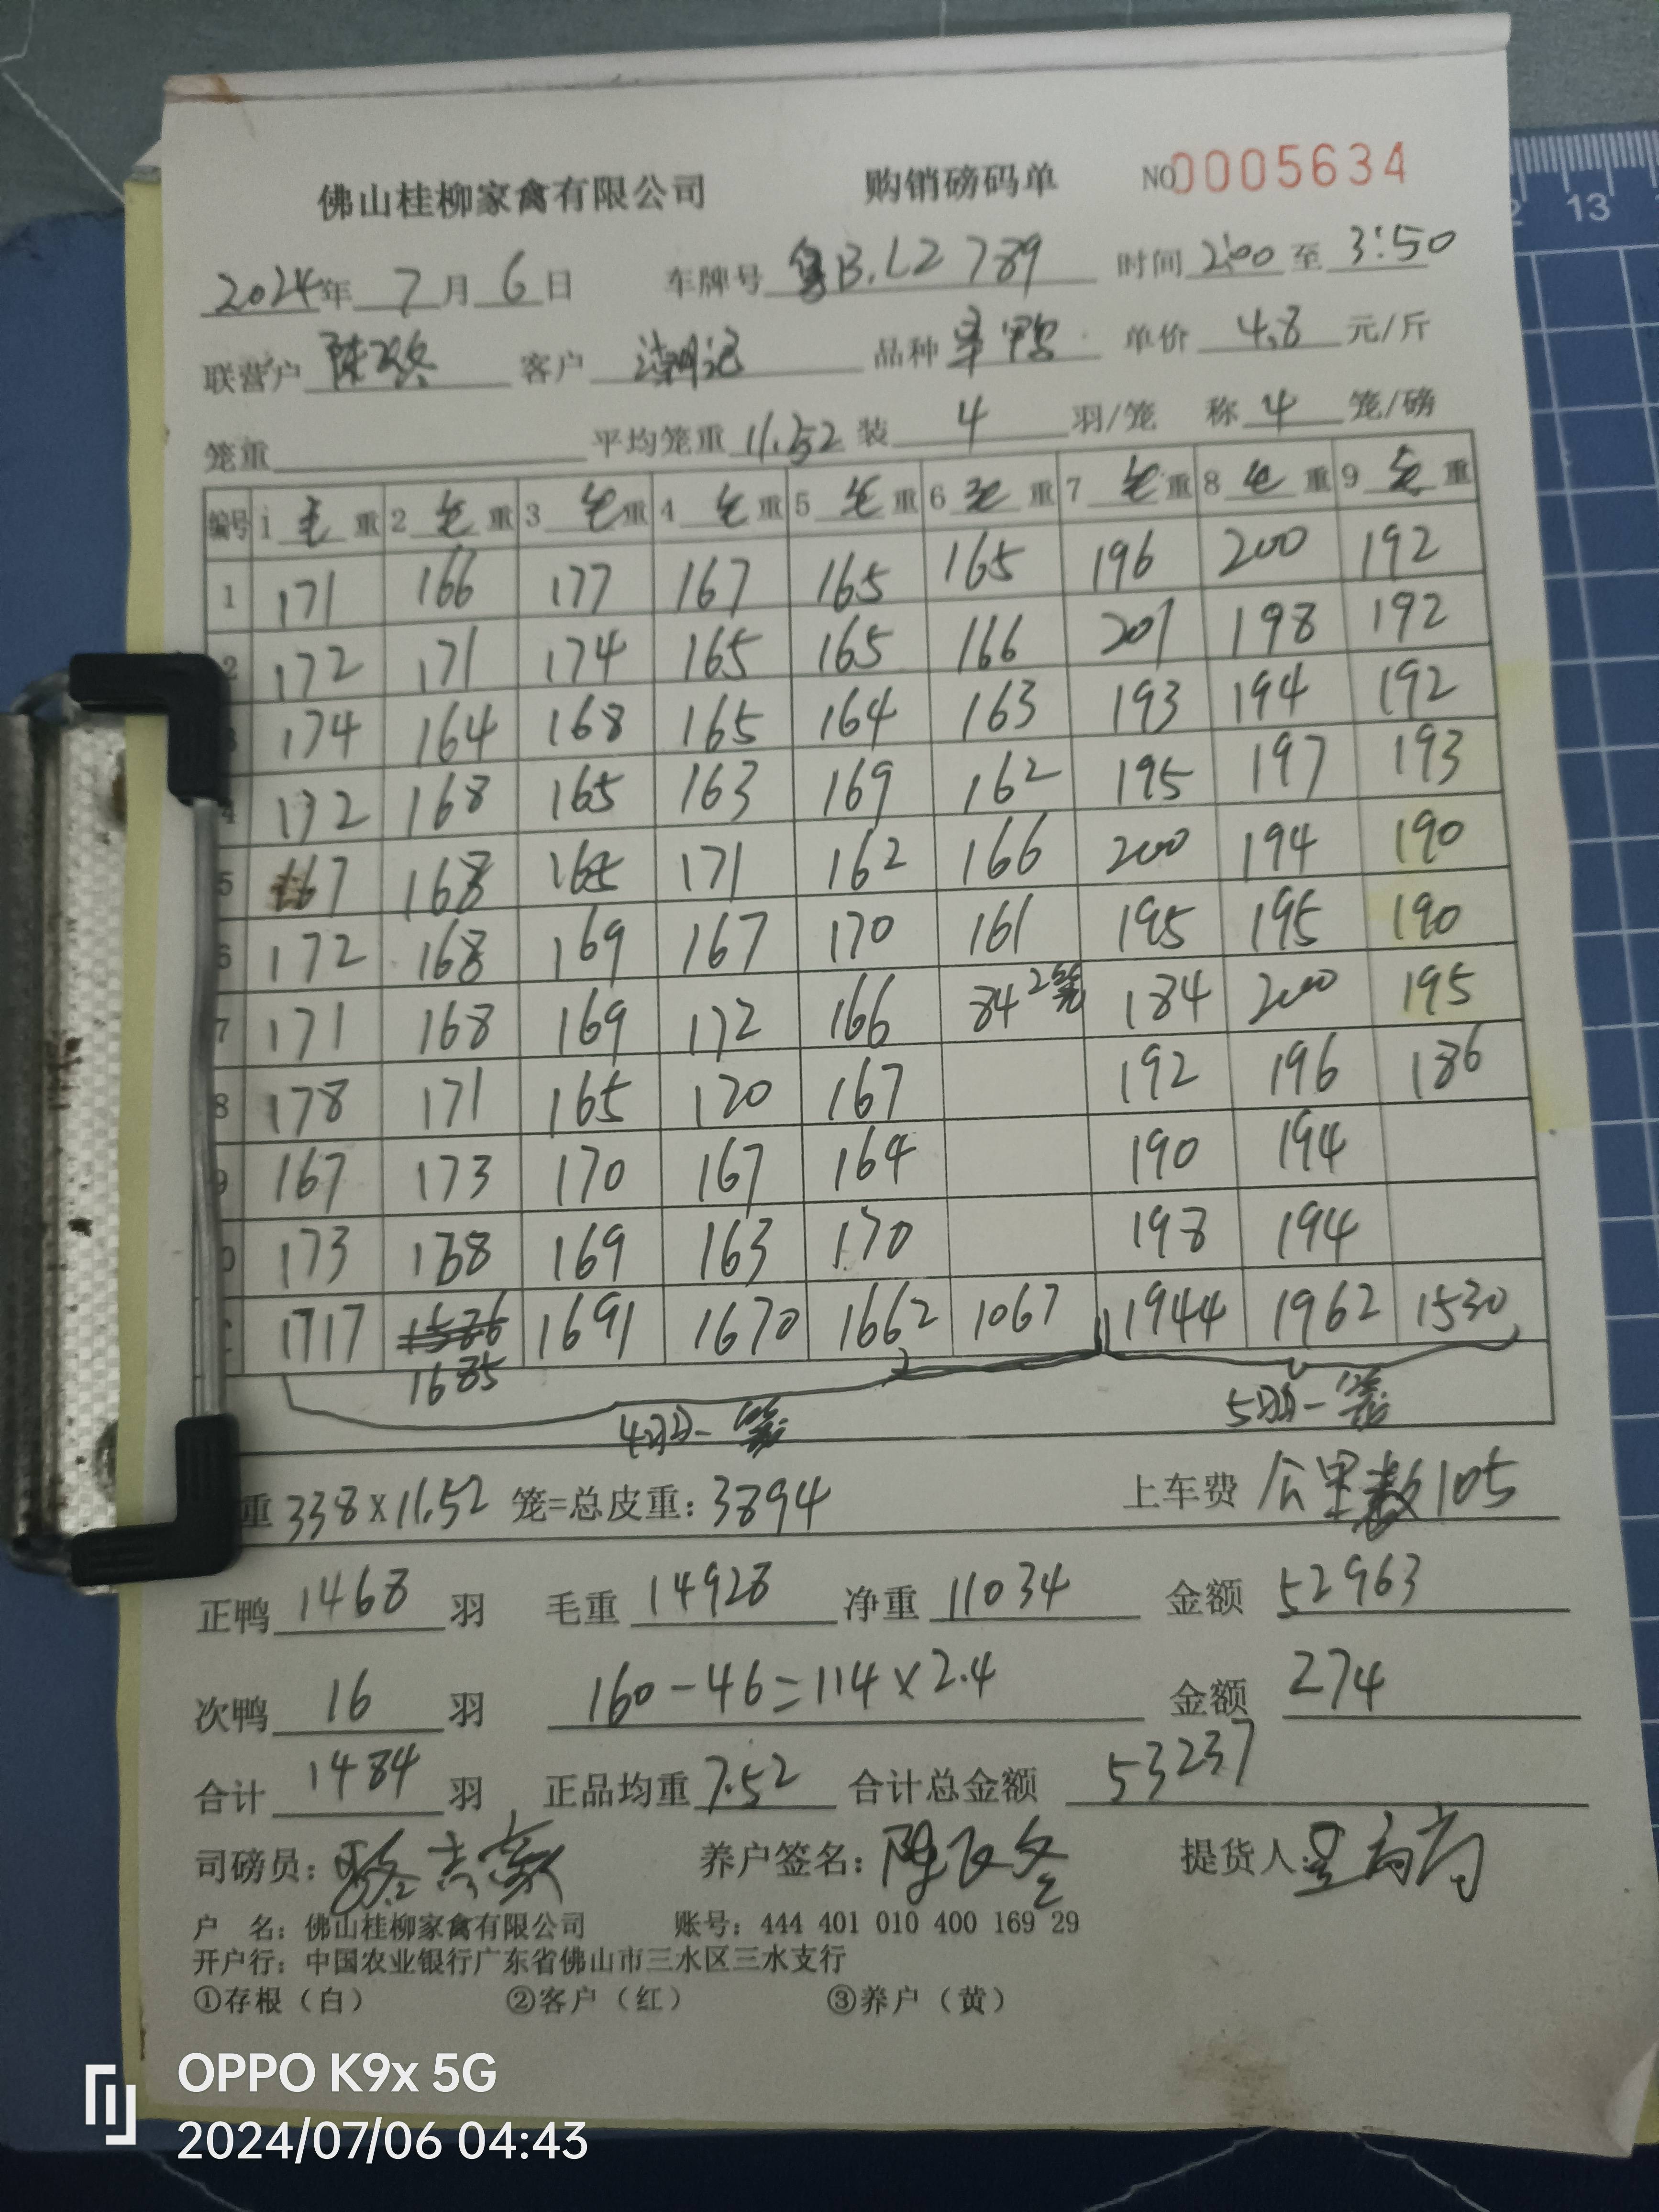 佛山桂柳家禽有限公司 购销磅码单 NO0005634
2024年 7 月 6 日 车牌号 粤B.L2789 时间 2:00 至 3:50
联营户 客户 品种 单价 4.8 元/斤
笼重 平均笼重 11.52 装 4 羽/笼 称 4 笼/磅
编号 1 毛 重 2 毛 重 3 毛 重 4 毛 重 5 毛 重 6 毛 重 7 毛 重 8 毛 重 9 毛 重
1 171 166 177 167 165 165 196 200 192
2 172 171 174 165 165 166 201 198 192
3 174 164 168 165 164 163 193 194 192
4 172 168 165 163 169 162 195 197 193
5 167 168 165 171 162 166 200 194 190
6 172 168 169 167 170 161 195 195 190
7 171 168 169 172 166 84 2笼 184 200 195
8 178 171 165 170 167 192 196 186
9 167 173 170 167 164 190 194
0 173 168 169 163 170 198 194
1717 1691 1670 1662 1067 1944 1962 1530
1685
4羽一笼 5羽一笼
重 338×11.52 笼=总皮重: 3894 上车费 公里数105
正鸭 1468 羽 毛重 14928 净重 11034 金额 52963
次鸭 16 羽 160-46=114×2.4 金额 274
合计 1484 羽 正品均重 7.52 合计总金额 53237
司磅员: 养户签名: 提货人:
户 名: 佛山桂柳家禽有限公司 账号: 444 401 010 400 169 29
开户行: 中国农业银行广东省佛山市三水区三水支行
①存根(白) ②客户(红) ③养户(黄)
12 13
OPPO K9x 5G
2024/07/06 04:43